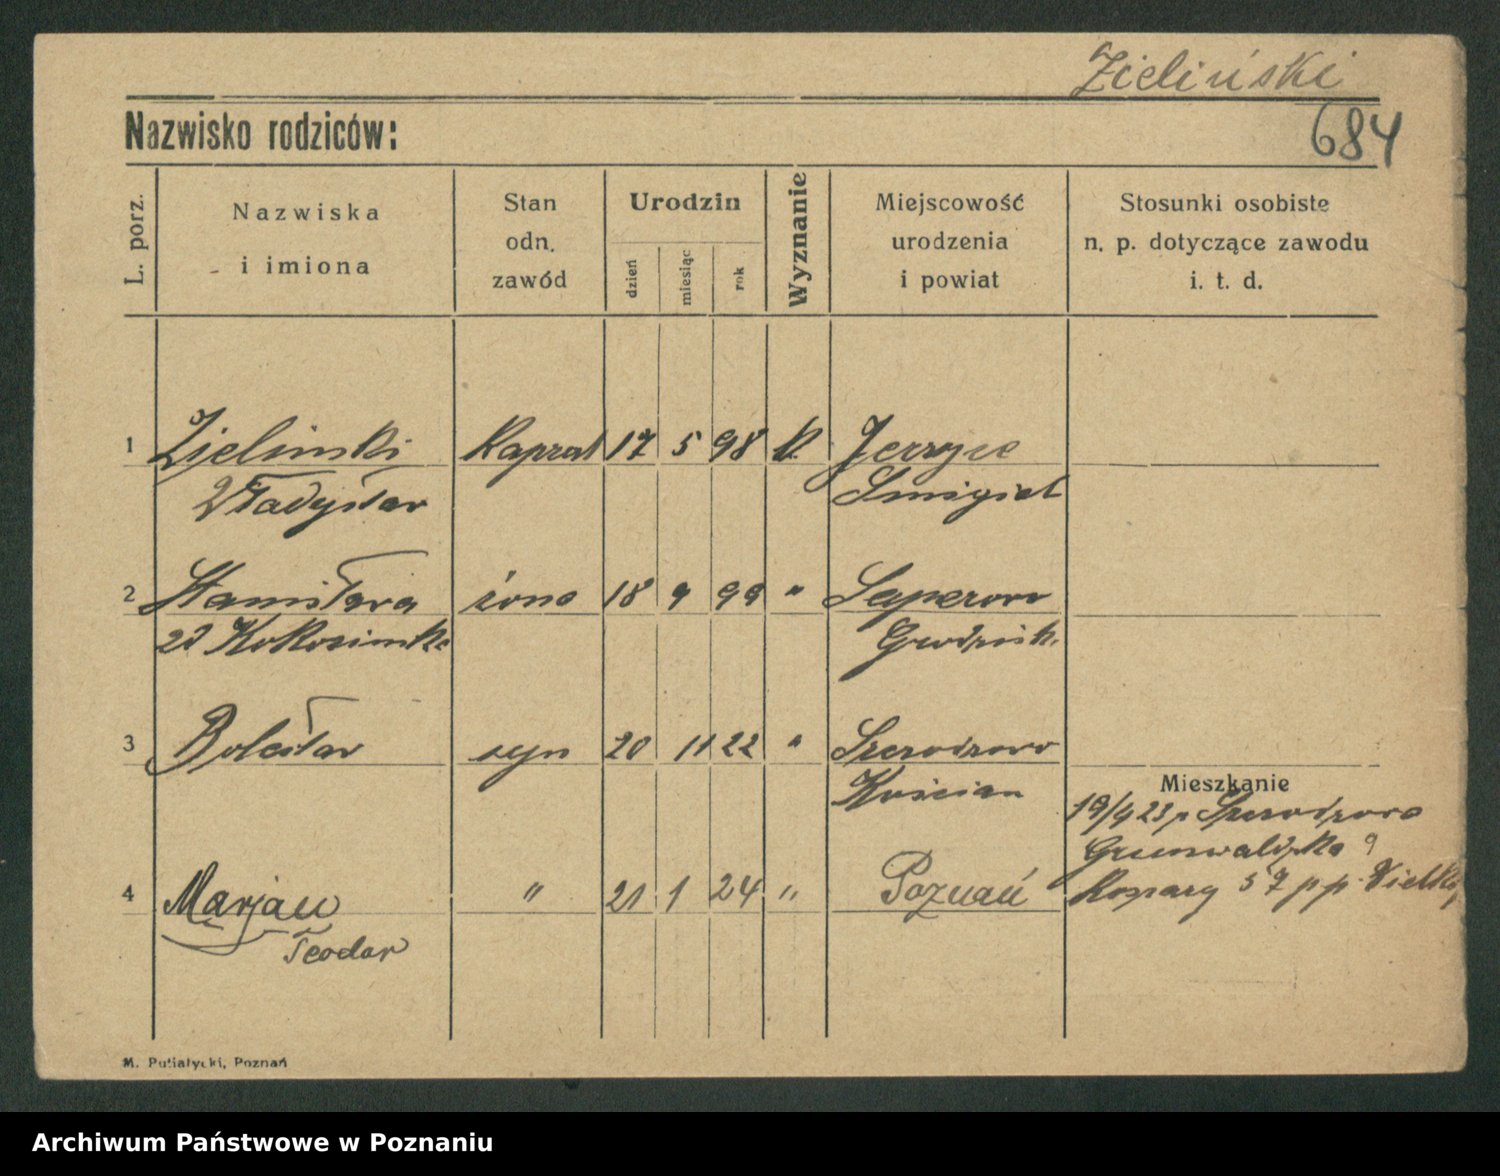 Zieliński
Nazwisko rodziców:
684
L. porz.
Nazwiska
i imiona
Stan
odn.
zawód
Urodzin
dzień
miesiąc
rok
Wyznanie
Miejscowość
urodzenia
i powiat
Stosunki osobiste
n. p. dotyczące zawodu
i. t. d.
1 Zielinski Kapral 17 5 98 k. Jerzyce
Władysław Smigiel
2 Stanisława żona 18 9 99 "
Grodzisk.
3 Bolesław syn 20 11 22 "
Kościan
Mieszkanie
19/4 23
Grunwaldzka 9
4 Marjan " 21 1 24 " Poznań
Teodor
M. Putiatycki, Poznań
Archiwum Państwowe w Poznaniu